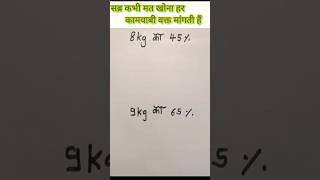 सब्र कभी मत खोना हर
कामयाबी वक्त मांगती हैं
8kg का 45%
9kg का 65%